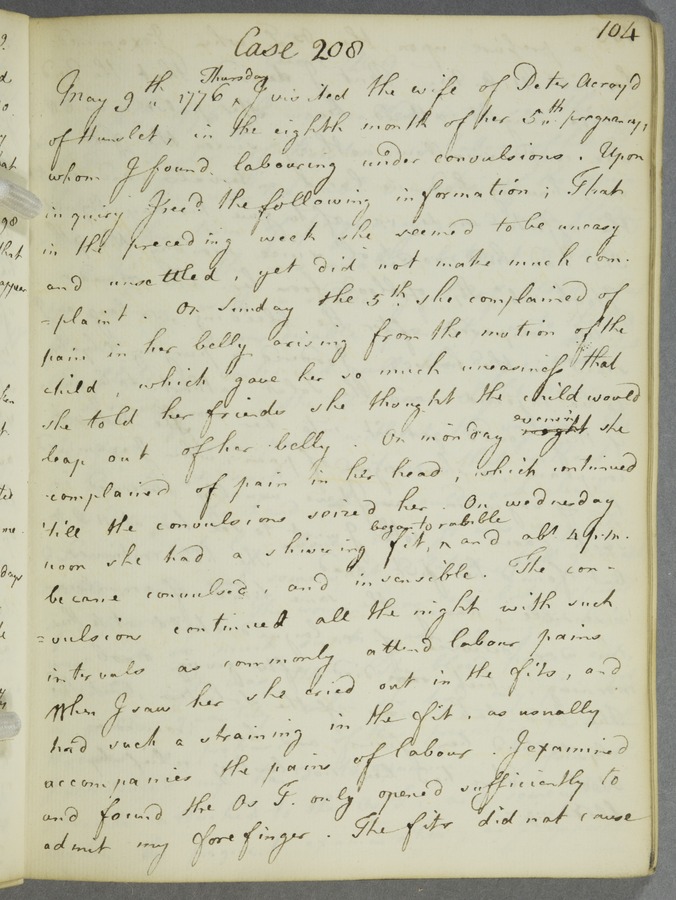 104
Case 208
May 9th 1776 ^ Thursday I visited the wife of Peter Acroyd
of Hunslet, in the eighth month of her 5th pregnancy,
whom I found labouring under convulsions. Upon
inquiry I recd. the following information; That
in the preceding week she seemed to be uneasy
and unsettled, yet did not make much com-
=plaint. On Sunday the 5th. she complained of
pain in her belly arising from the motion of the
child, which gave her so much uneasiness that
she told her friends she thought the child would
leap out of her belly. On monday evening night she
complained of pain in her head, which continued
'till the convulsions seized her. On wednesday
noon she had a shivering fit, ^ began to rabble and abt 4 p.m.
became convulsed, and insensible. The con-
=vulsions continued all the night with such
intervals as commonly attend labour pains
When I saw her she cried out in the fits, and
had such a straining in the fit, as usually
accompanies the pains of labour. I examined
and found the Os T. only opened sufficiently to
admit my forefinger. The fits did not cause